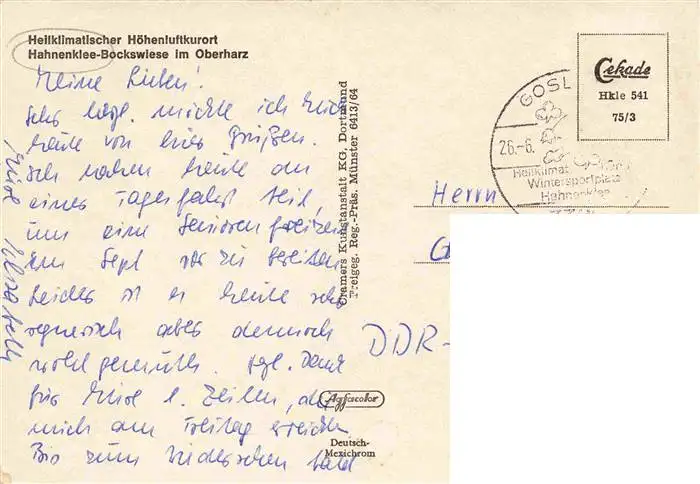 Heilklimatischer Höhenluftkurort
Hahnenklee-Bockswiese im Oberharz
Meine Lieben!
Sehr hzgl. möchte ich Euch
heute von hier Grüßen.
Ich nahm heute an
einer Tagesfahrt teil,
um eine Seniorenfreizeit
im Sept vor zu bereiten
Leider ist es heute sehr
regnerisch aber dennoch
wohlgemuth. hzgl. Dank
für Eure l. Zeilen, die
mich am Freitag erreichten
Bis zum Wiedersehen bald
Eure Elisabeth
Cramers Kunstanstalt KG. Dortmund
Freigeg. Reg.-Präs. Münster 6413/64
Agfacolor
Deutsch-
Mexichrom
Cekade
Hkle 541
75/3
GOSL
26.-6.
Heilklimat
Wintersportplatz
Hahnenklee
Herrn
DDR-